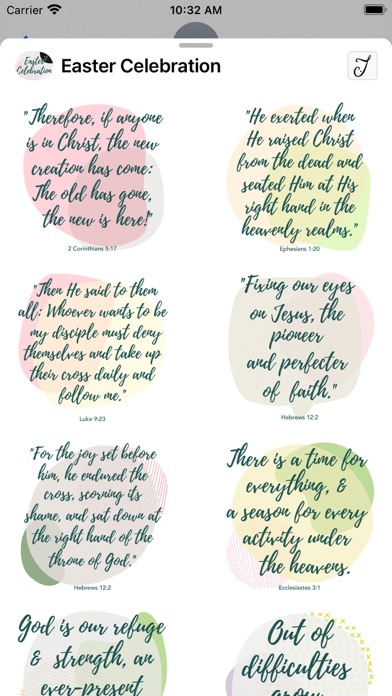 Carrier 10:32 AM
Easter Celebration
Easter Celebration
J
"Therefore, if anyone
is in Christ, the new
creation has come:
The old has gone,
the new is here!"
2 Corinthians 5:17
"He exerted when
He raised Christ
from the dead and
seated Him at His
right hand in the
heavenly realms."
Ephesians 1:20
"Then He said to them
all: Whoever wants to be
my disciple must deny
themselves and take up
their cross daily and
follow me."
Luke 9:23
"Fixing our eyes
on Jesus, the
pioneer
and perfecter
of faith."
Hebrews 12:2
"For the joy set before
him, he endured the
cross, scorning its
shame, and sat down at
the right hand of the
throne of God."
Hebrews 12:2
There is a time for
everything, &
a season for every
activity under
the heavens.
Ecclesiastes 3:1
God is our refuge
& strength, an
ever-present
Out of
difficulties
grow